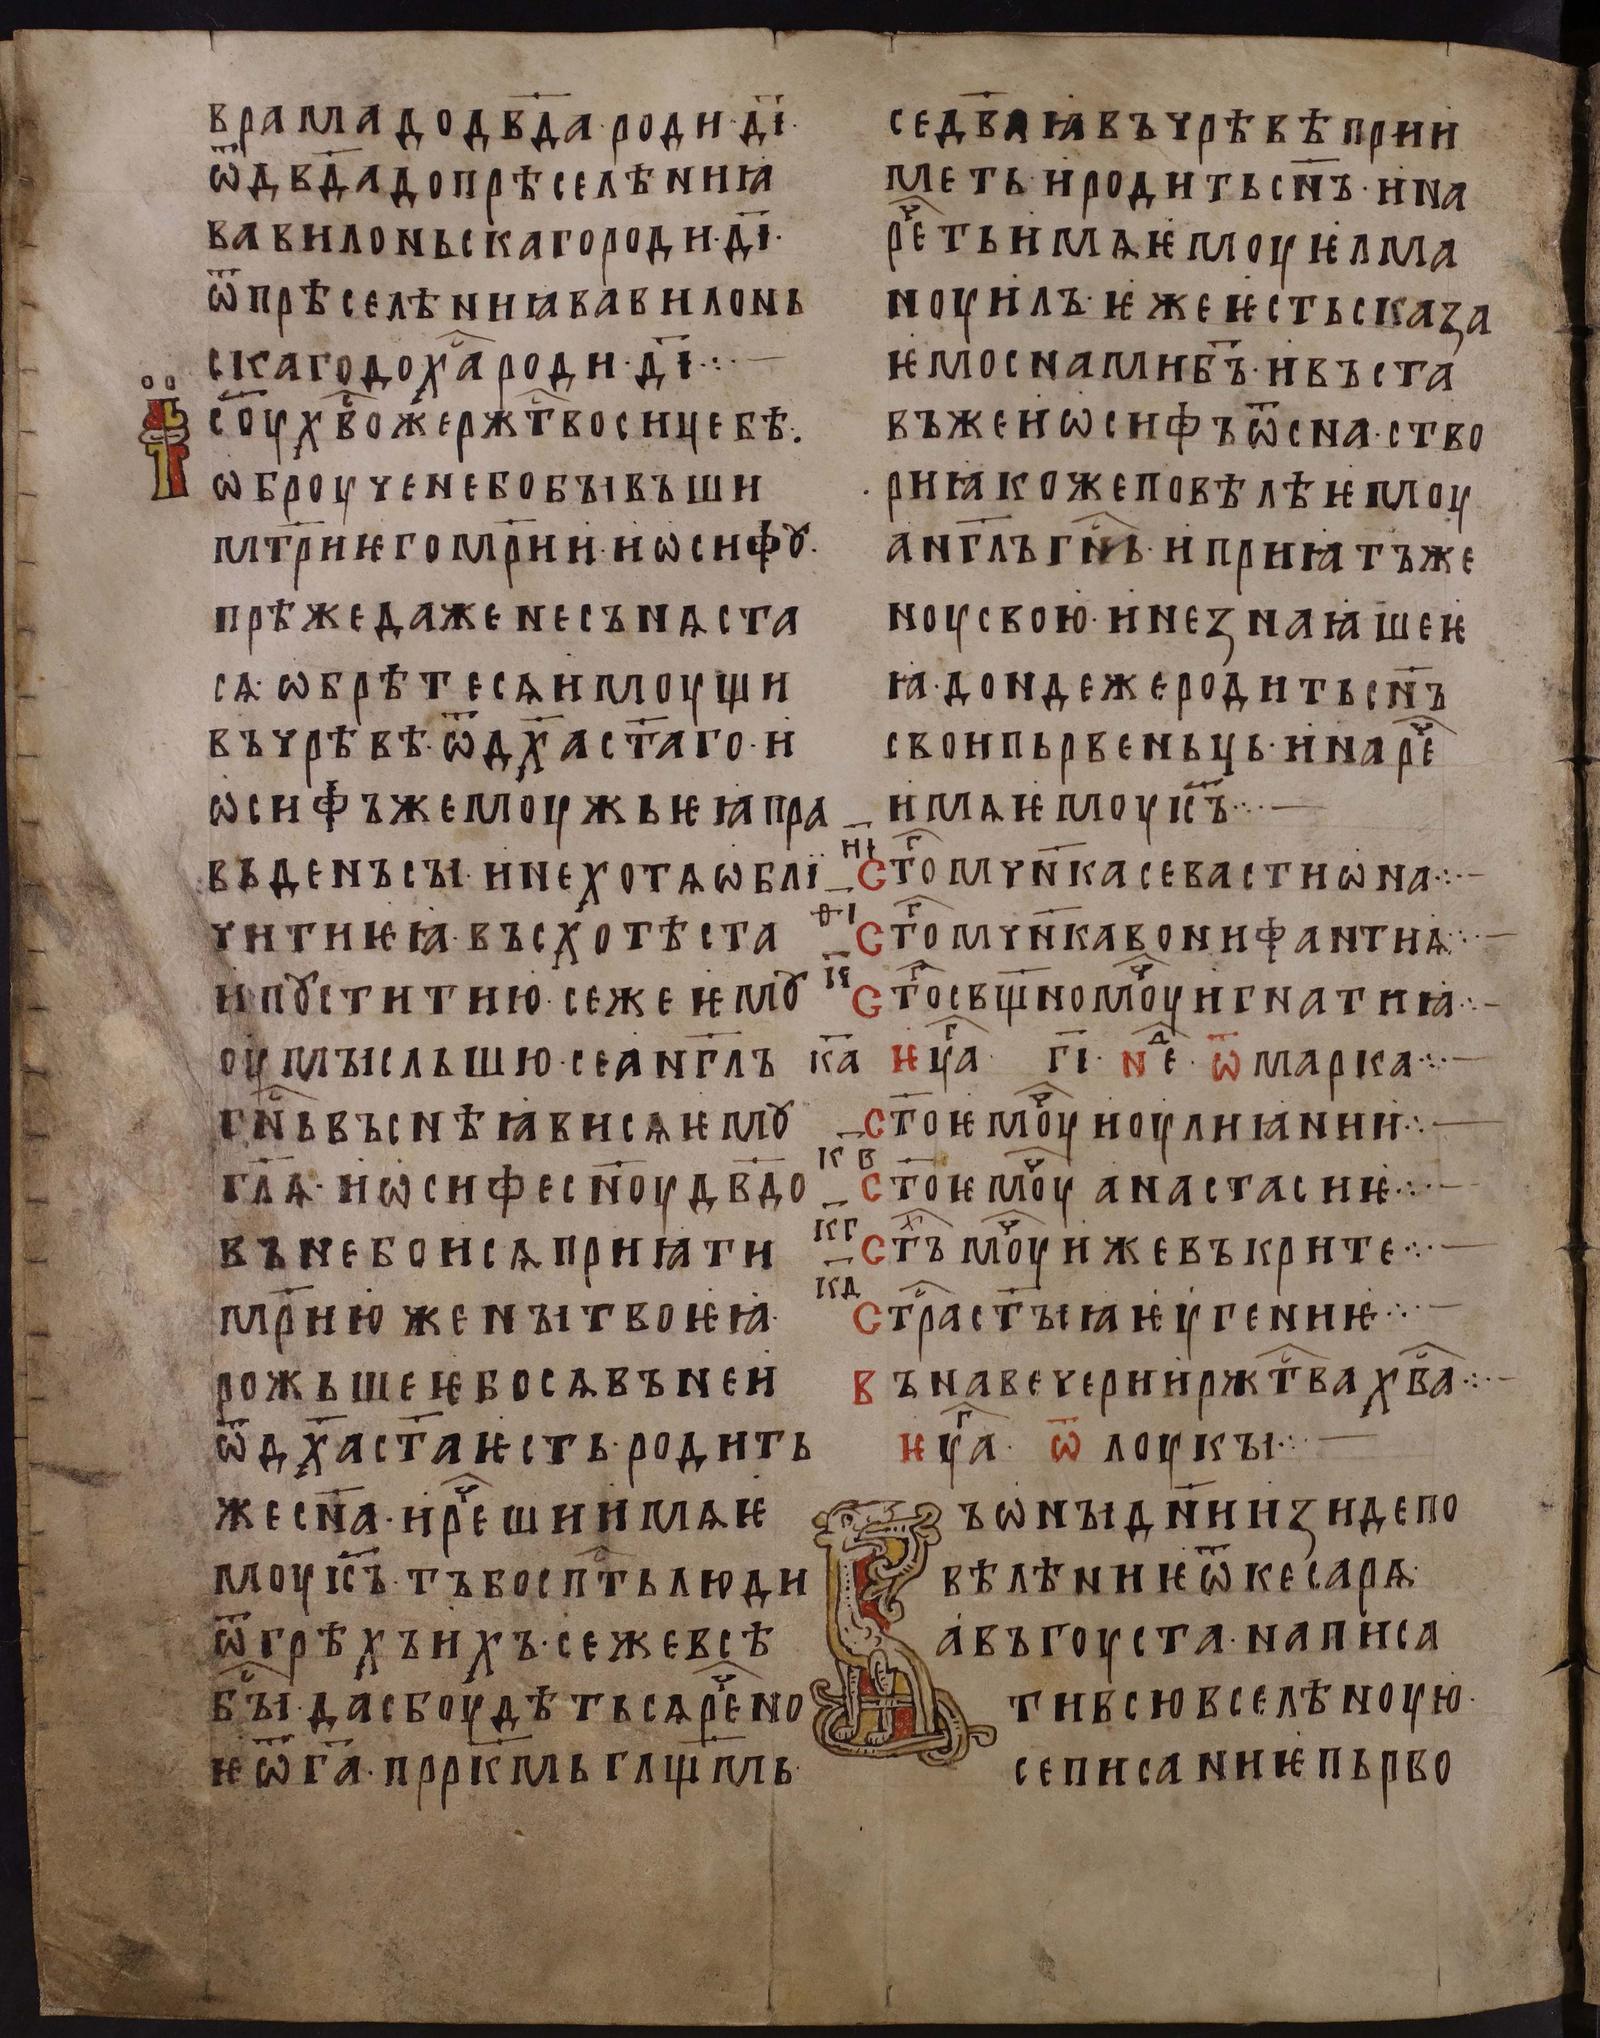 врама до дв҃да · роди · д҃і ·
ѿ дв҃да до прѣселѣниꙗ
вавилоньскаго роди · д҃і ·
ѿ прѣселѣниꙗ вавилонь
скаго до х҃а роди · д҃і ·:·
І с҃оу хв҃о же ржт҃во сице бѣ :·
ѡброученѣ бо бывъши
мт҃ри ѥго мр҃ии · иѡсифꙋ ·
прѣже даже не сънѧста
сѧ · ѡбрѣте сѧ имоущи
въ чрѣвѣ · ѿ дх҃а ст҃аго · и
ѡсифъ же моужь ѥꙗ пра
вьденъ сы · и не хотѧ ѡблі
чити ѥꙗ · въсхотѣ ста
и пꙋстити ю · се же ѥмꙋ
оумысльшю · се анг҃лъ
гн҃ь въ снѣ ꙗви сѧ ѥмꙋ
гл҃ѧ · иѡсифе сн҃оу дв҃до
въ не бои сѧ приꙗти
мр҃ию жены твоѥꙗ ·
рожьшеѥ бо сѧ въ неи
ѿ дх҃а ст҃а ѥсть · родить
же сн҃а · и рч҃еши имѧ ѥ
моу іс҃ъ · тъ бо сп҃ть люди
ѿ грѣхъ ихъ · се же все
бы҃ · да сбоудѣть сѧ рч҃ено
ѥ ѿ г҃а · пррк҃мь глщ҃мь ·
се дв҃аꙗ въ чрѣвѣ прии
меть · и родить сн҃ъ · и на
рч҃еть имѧ ѥмоу ѥмма
ноуилъ · ѥже ѥсть сказа
ѥмо с нами б҃ъ · и въста
въ же иѡсифъ ѿ сна · ство
ри ꙗкоже повѣлѣ ѥмоу
анг҃лъ гн҃ь · и приꙗтъ же
ноу свою · и не знаꙗше ѥ
ꙗ · дондеже родить сн҃ъ
свои пьрвеньць · и нарч҃е
имѧ ѥмоу іс҃ъ ·:·
и҃і ст҃го мчн҃ка севастиѡна ·:·
ѳ҃і ст҃го мчн҃ка вонифантиѧ ·:·
к҃ ст҃го свщ҃номоч҃у игнатиꙗ ·:·
к҃а нц҃а г҃і · не҃д · ѿ марка ·:·
ст҃оѥ моч҃у иоулиꙗнии ·:·
к҃в ст҃оѥ моч҃у анастасиѥ ·:·
к҃г ст҃хъ моч҃у иже въ крите ·:·
к҃д стр҃а ст҃ыꙗ ѥугениѥ ·:·
въ навечерни ржт҃ва хв҃а ·:·
нц҃а · ѿ лоукы ·:·
въ ѡны дн҃и изиде по
вѣлѣниѥ ѿ кесарѧ
авъгоуста · написа
ти вьсю вселѣноую ·
се писаниѥ пьрво